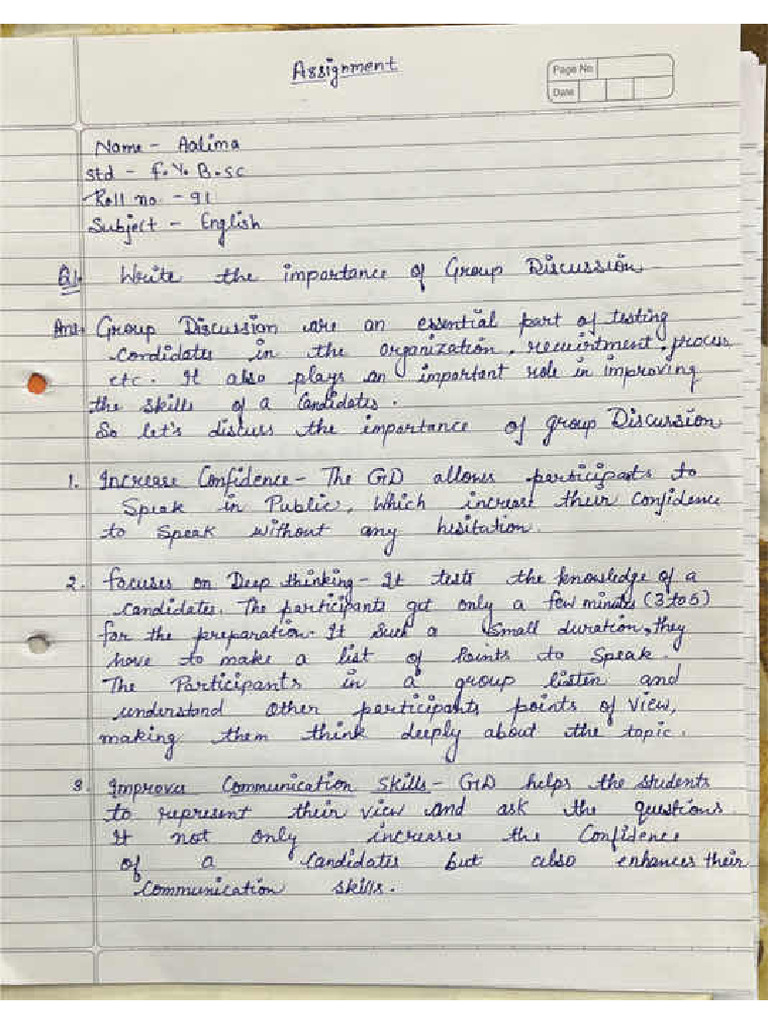 Assignment
Page No
Date
Name - Aalima
Std - F.Y. B.sc
Roll no. - 91
Subject - English
Q1. Write the importance of Group Discussion
Ans. Group Discussion are an essential part of testing
candidates in the organization, recuirtment process
etc. It also plays an important role in improving
the skills of a Candidates.
So let's discuss the importance of group Discussion
1. Increase Confidence - The GD allows participants to
Speak in Public, Which increase their confidence
to speak without any hesitation.
2. focuses on Deep thinking - It tests the knowledge of a
candidates. The participants get only a few minutes (3 to 5)
for the preparation. It such a small duration, they
have to make a list of Points to Speak.
The Participants in a group listen and
understand other participants points of view,
making them think deeply about the topic.
3. Improves Communication Skills - GD helps the students
to represent their view and ask the questions.
It not only increases the Confidence
of a Candidates but also enhances their
Communication skills.